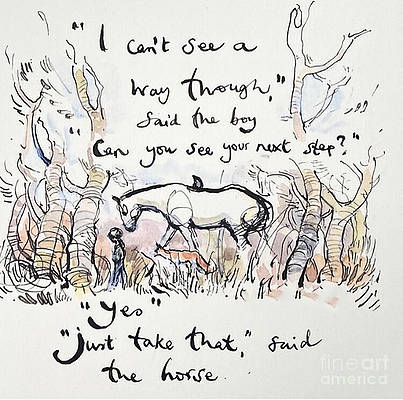 "I can't see a
way through,"
said the boy
"Can you see your next step?"
"Yes"
"just take that," said
the horse.
fine art
america